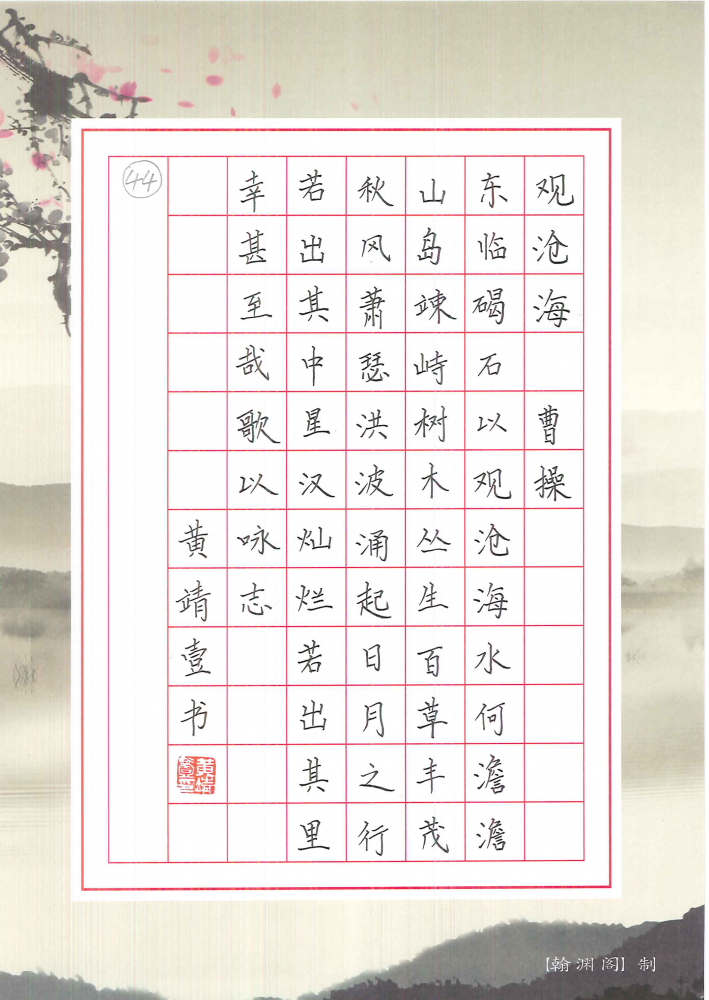 观沧海 曹操
东临碣石以观沧海水何澹澹
山岛竦峙树木丛生百草丰茂
秋风萧瑟洪波涌起日月之行
若出其中星汉灿烂若出其里
幸甚至哉歌以咏志
黄靖壹书
44
【翰渊阁】制